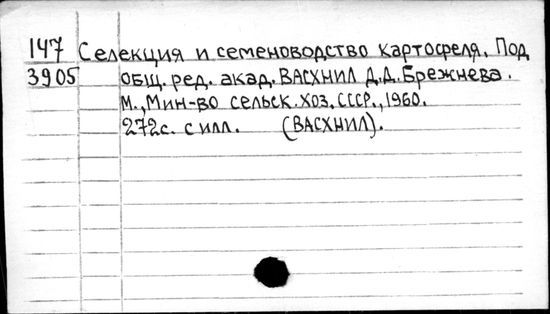 147 Селекция и семеноводство картофеля. Под
3905 общ. ред. акад. ВАСХНИЛ Д.Д. Брежнева.
М., Мин-во сельск. хоз. СССР., 1960.
272с. с илл. (ВАСХНИЛ).